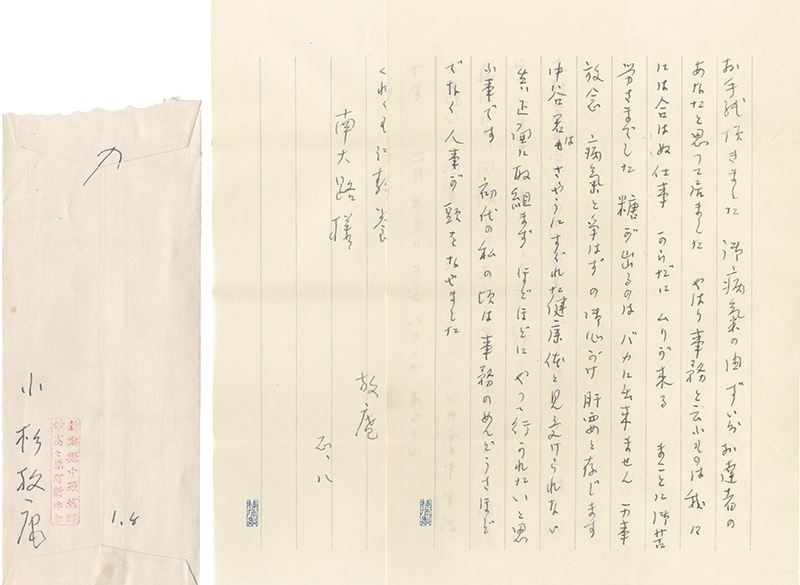 お手紙頂きました 御病氣の由 ずいぶんお達者の
あなたと思つて居ました やはり事務と云ふものは我々
には合はぬ仕事 からだにムリが来る まことに御苦
労さまでした 糖が出るのは バカに出来ません 万事
放念 病氣と争はずの御心がけ 肝要と存じます
中谷君はさやうにすぐれた健康体と見受けられない
真正面に取組まず ほどほどに やつて行かれたいと思
ふ事です 初代の私の頃は事務のめんどうさほど
でなく人事が頭をなやました
くれぐれも御静養
放庵
南大路様
〆
新潟縣中頸城郡
妙高々原町新赤倉
1.8
小杉放庵